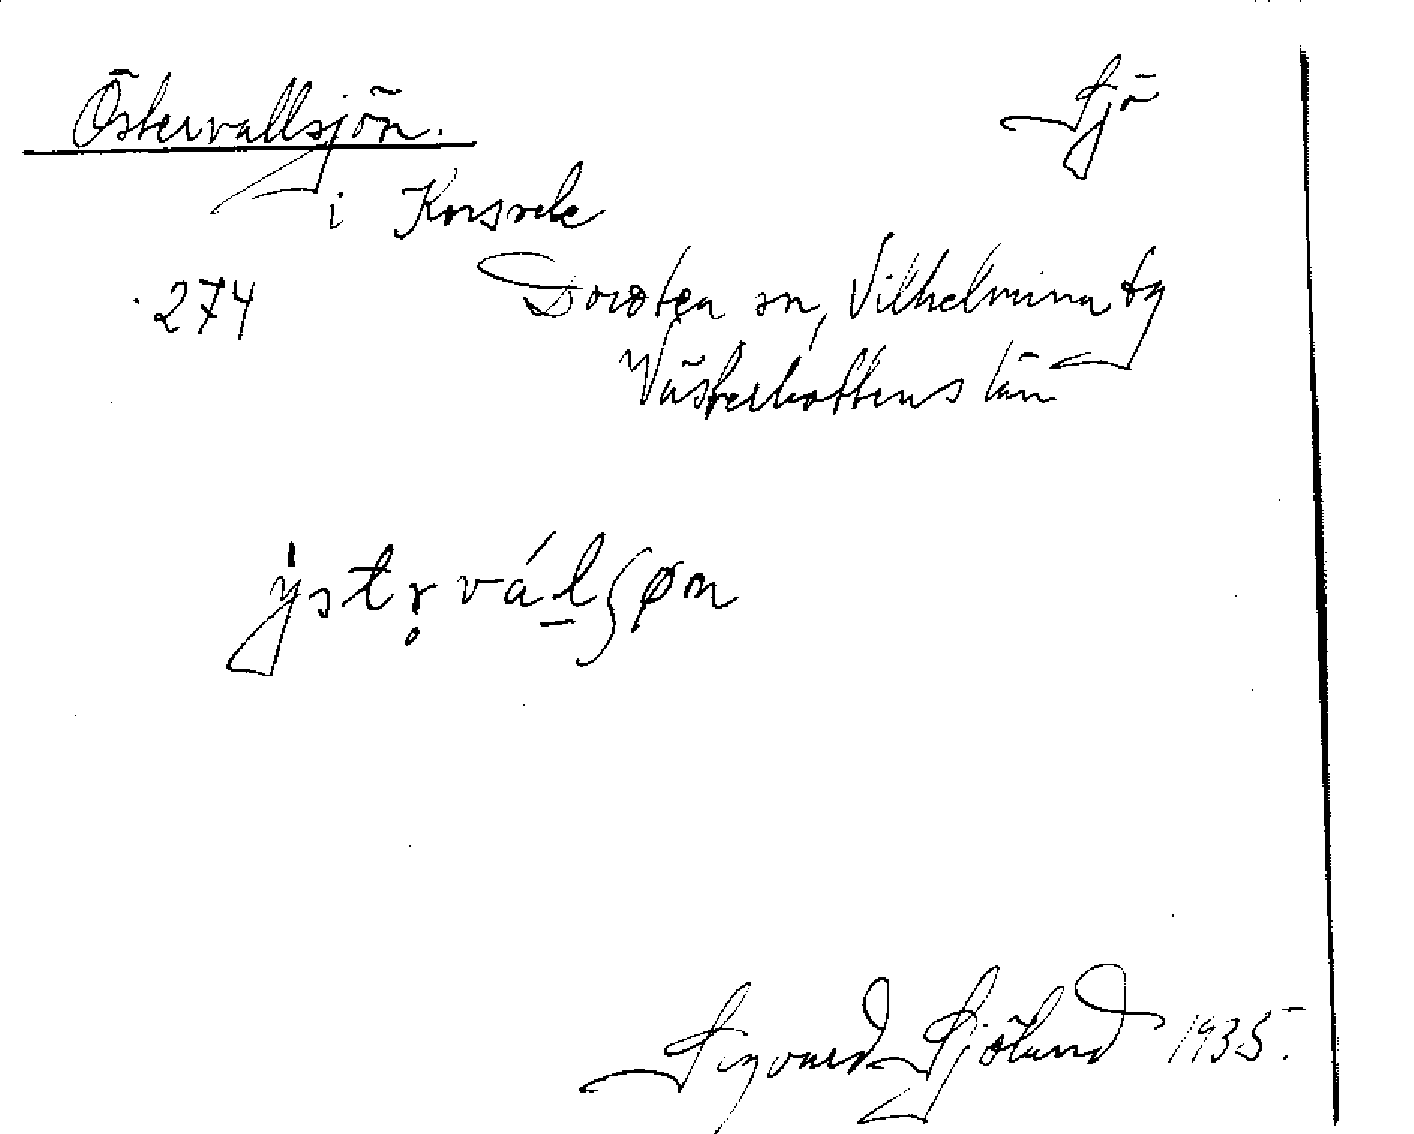 Östervallsjön. Sjö
i Korsele
274 Dorotea sn, Vilhelmina tg
Västerbottens län
ẏstr̥válʃøn
Sigvard Sjölund 1935.